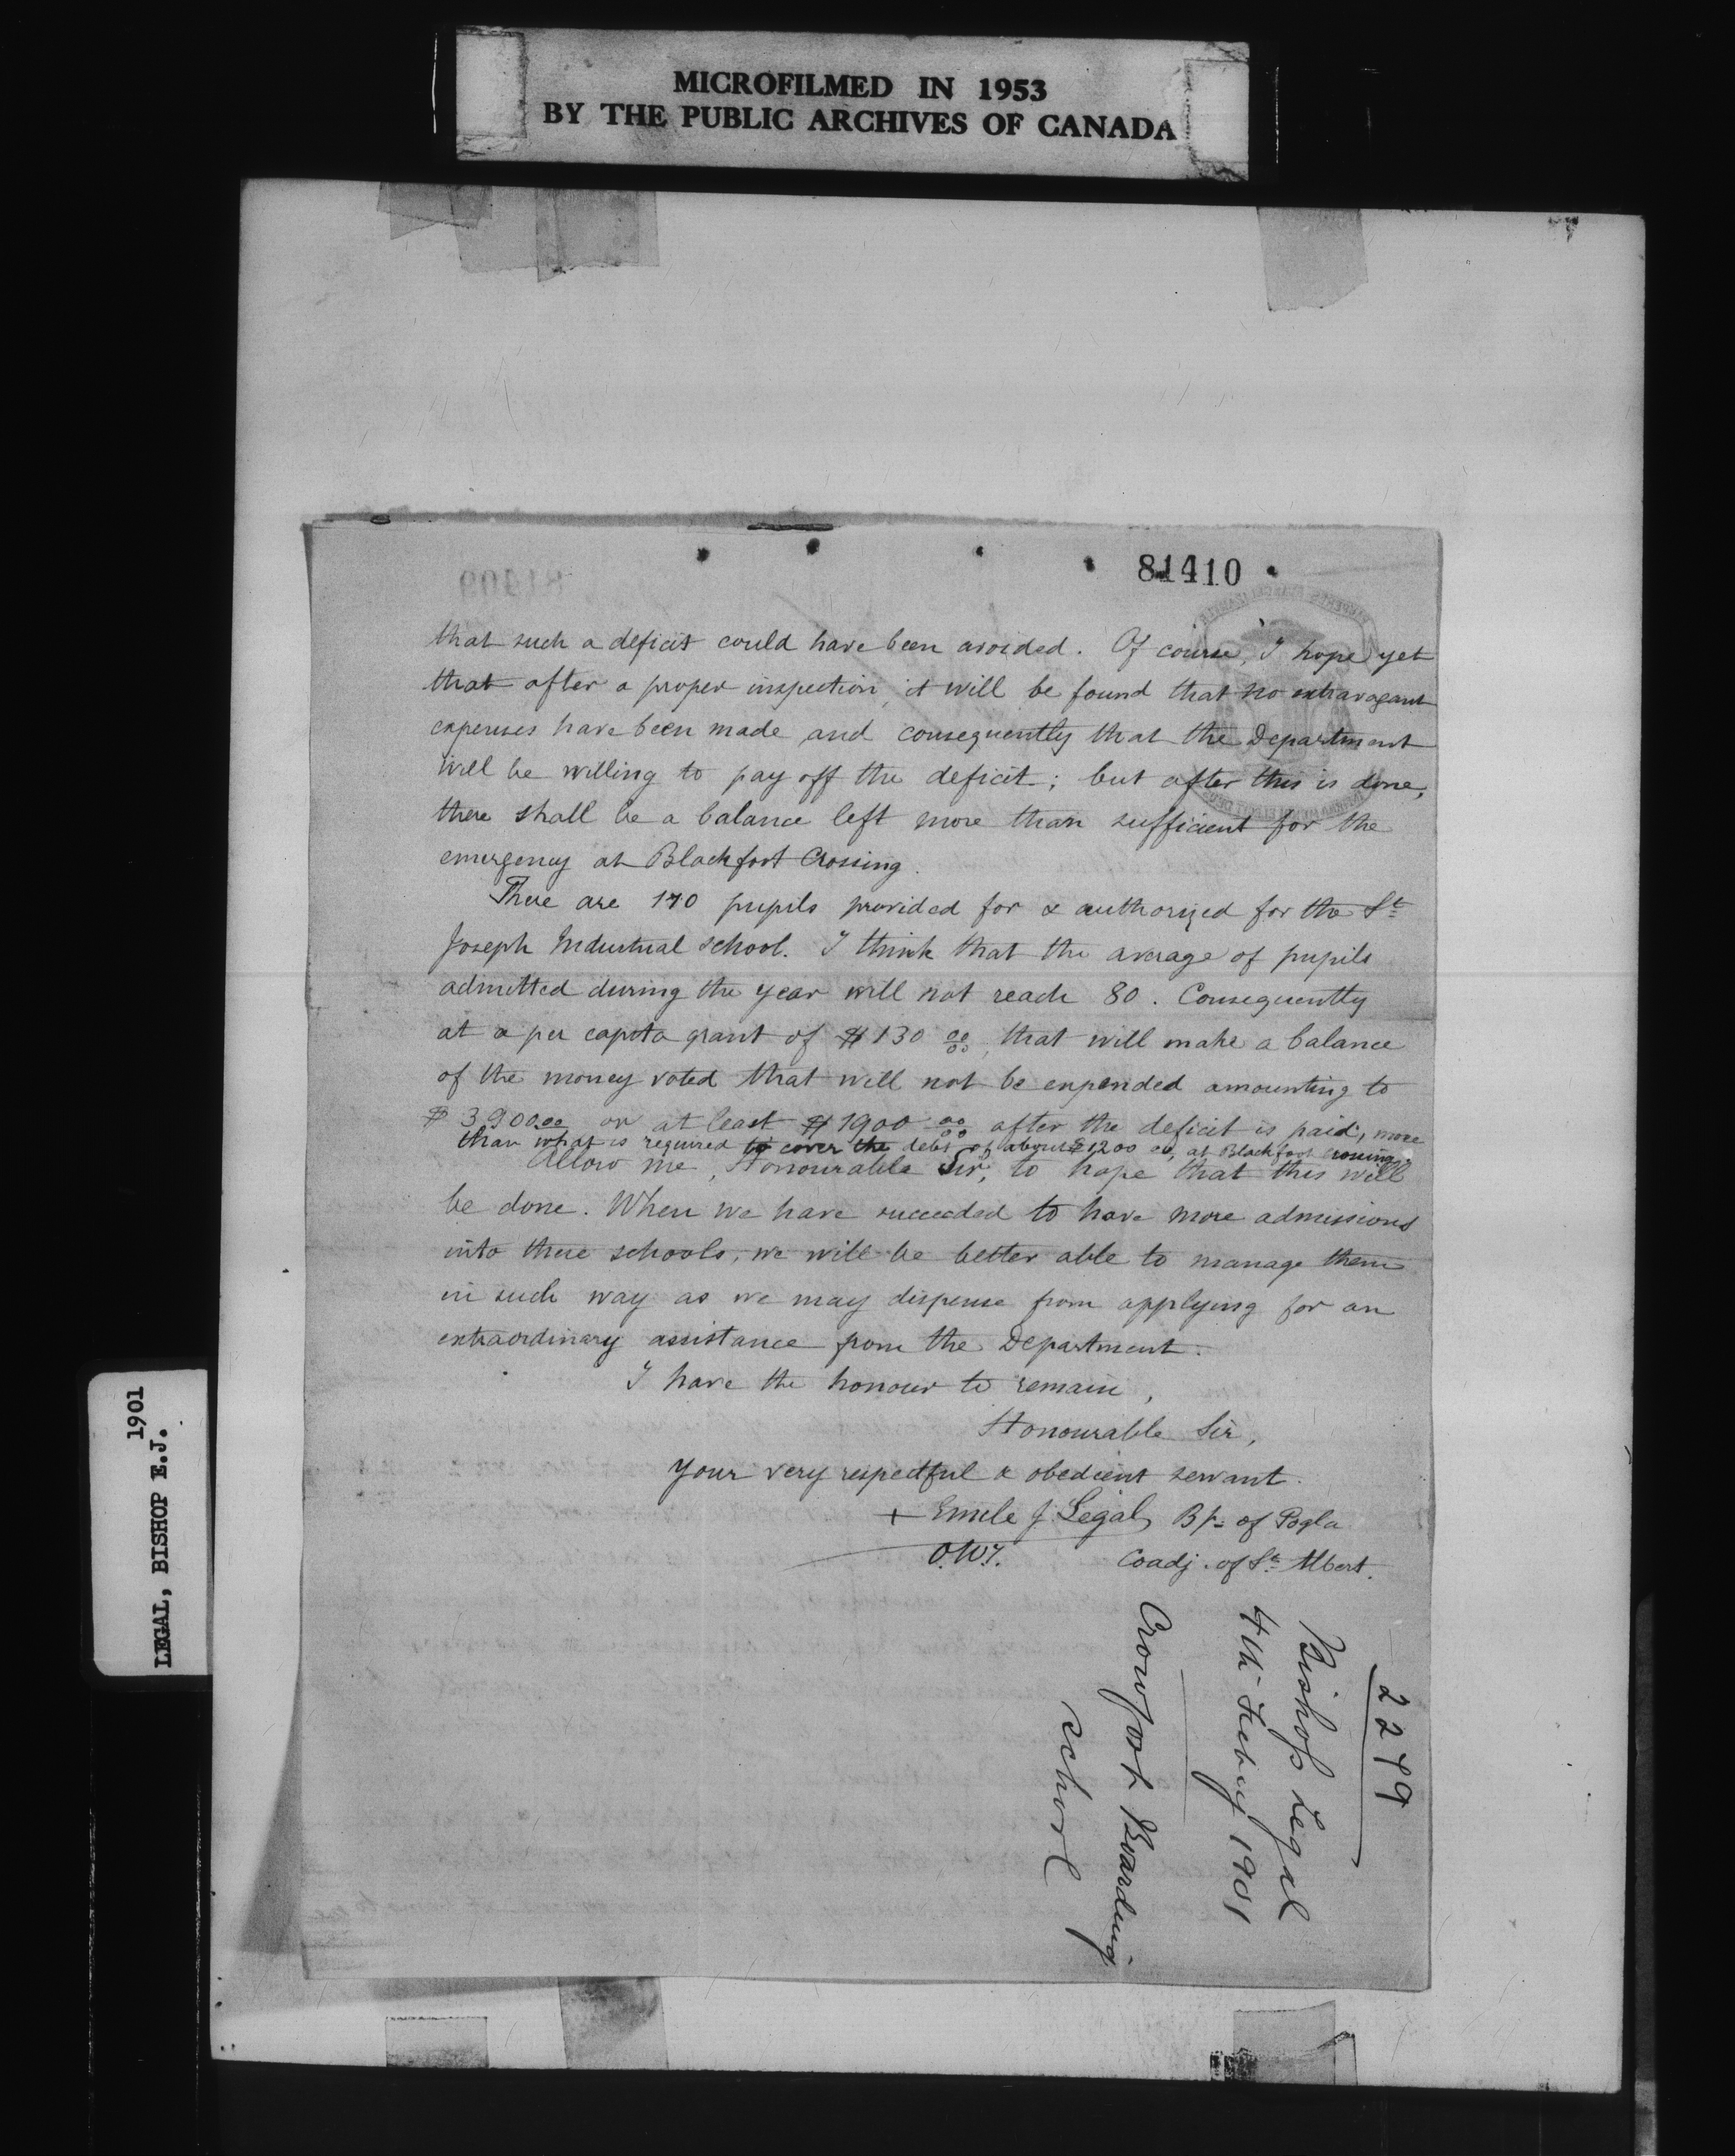 MICROFILMED IN 1953
BY THE PUBLIC ARCHIVES OF CANADA
81409
81410
that such a deficit could have been avoided. Of course, I hope yet
that after a proper inspection, it will be found that no extravagant
expenses have been made and consequently that the Department
will be willing to pay off the deficit; but after this is done,
there shall be a balance left more than sufficient for the
emergency at Blackfoot Crossing.
There are 110 pupils provided for & authorized for the St
Joseph Industrial school. I think that the average of pupils
admitted during the year will not reach 80. Consequently
at a per capita grant of $130 00/00, that will make a balance
of the money voted that will not be expended amounting to
$3900.00 or at least $1900 00/00 after the deficit is paid, more
than what is required to cover the debt of about $1200 00, at Blackfoot Crossing.
Allow me, Honourable Sir, to hope that this will
be done. When we have succeeded to have more admissions
into these schools, we will be better able to manage them
in such way as we may dispense from applying for an
extraordinary assistance from the Department.
I have the honour to remain,
Honourable Sir,
Your very respectful & obedient servant.
+ Emile J. Legal, Bp. of Pogla
O.M.I. Coadj. of St. Albert.
2279
Bishop Legal
4th Feby 1901
Crowfoot Boarding
School
LEGAL, BISHOP E.J.
1901